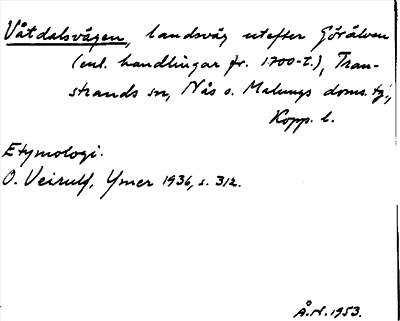 Våtdalsvägen, landsväg utefter Görälven
(enl. handlingar fr. 1700-t.), Tran-
strands sn, Nås o. Malungs doms. tj.,
Kopp. l.
Etymologi.
O. Veirulf, Ymer 1936, s. 312.
Å.N. 1953.